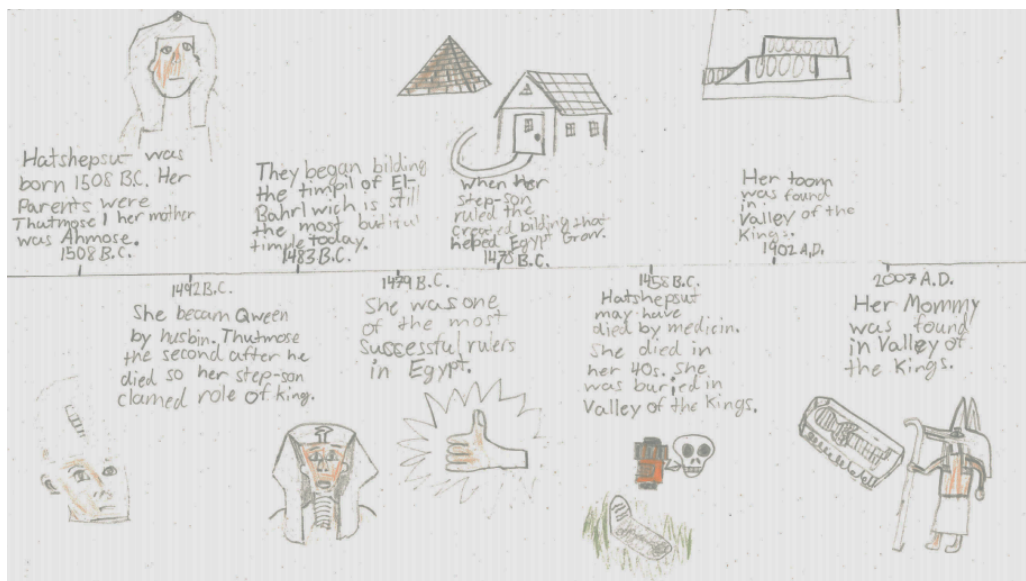 Hatshepsut was
born 1508 B.C. Her
Parents were
Thutmose I her mother
was Ahmose.
1508 B.C.
They began bilding
the timpil of El-
Bahrl wich is still
the most butiful
timple today.
1483 B.C.
when Her
step-son
ruled the
created bilding that
heped Egypt Grow.
1475 B.C.
Her toom
was found
in
Valley of the
Kings.
1902 A.D.
1492 B.C.
She becam Qween
by husbin. Thutmose
the second after he
died so her step-son
clamed role of king.
1479 B.C.
She was one
of the most
Successful rulers
in Egypt.
1458 B.C.
Hatshepsut
may have
died by medicin.
She died in
her 40s. She
was buried in
Valley of the Kings.
2007 A.D.
Her Mommy
was found
in Valley of
the Kings.